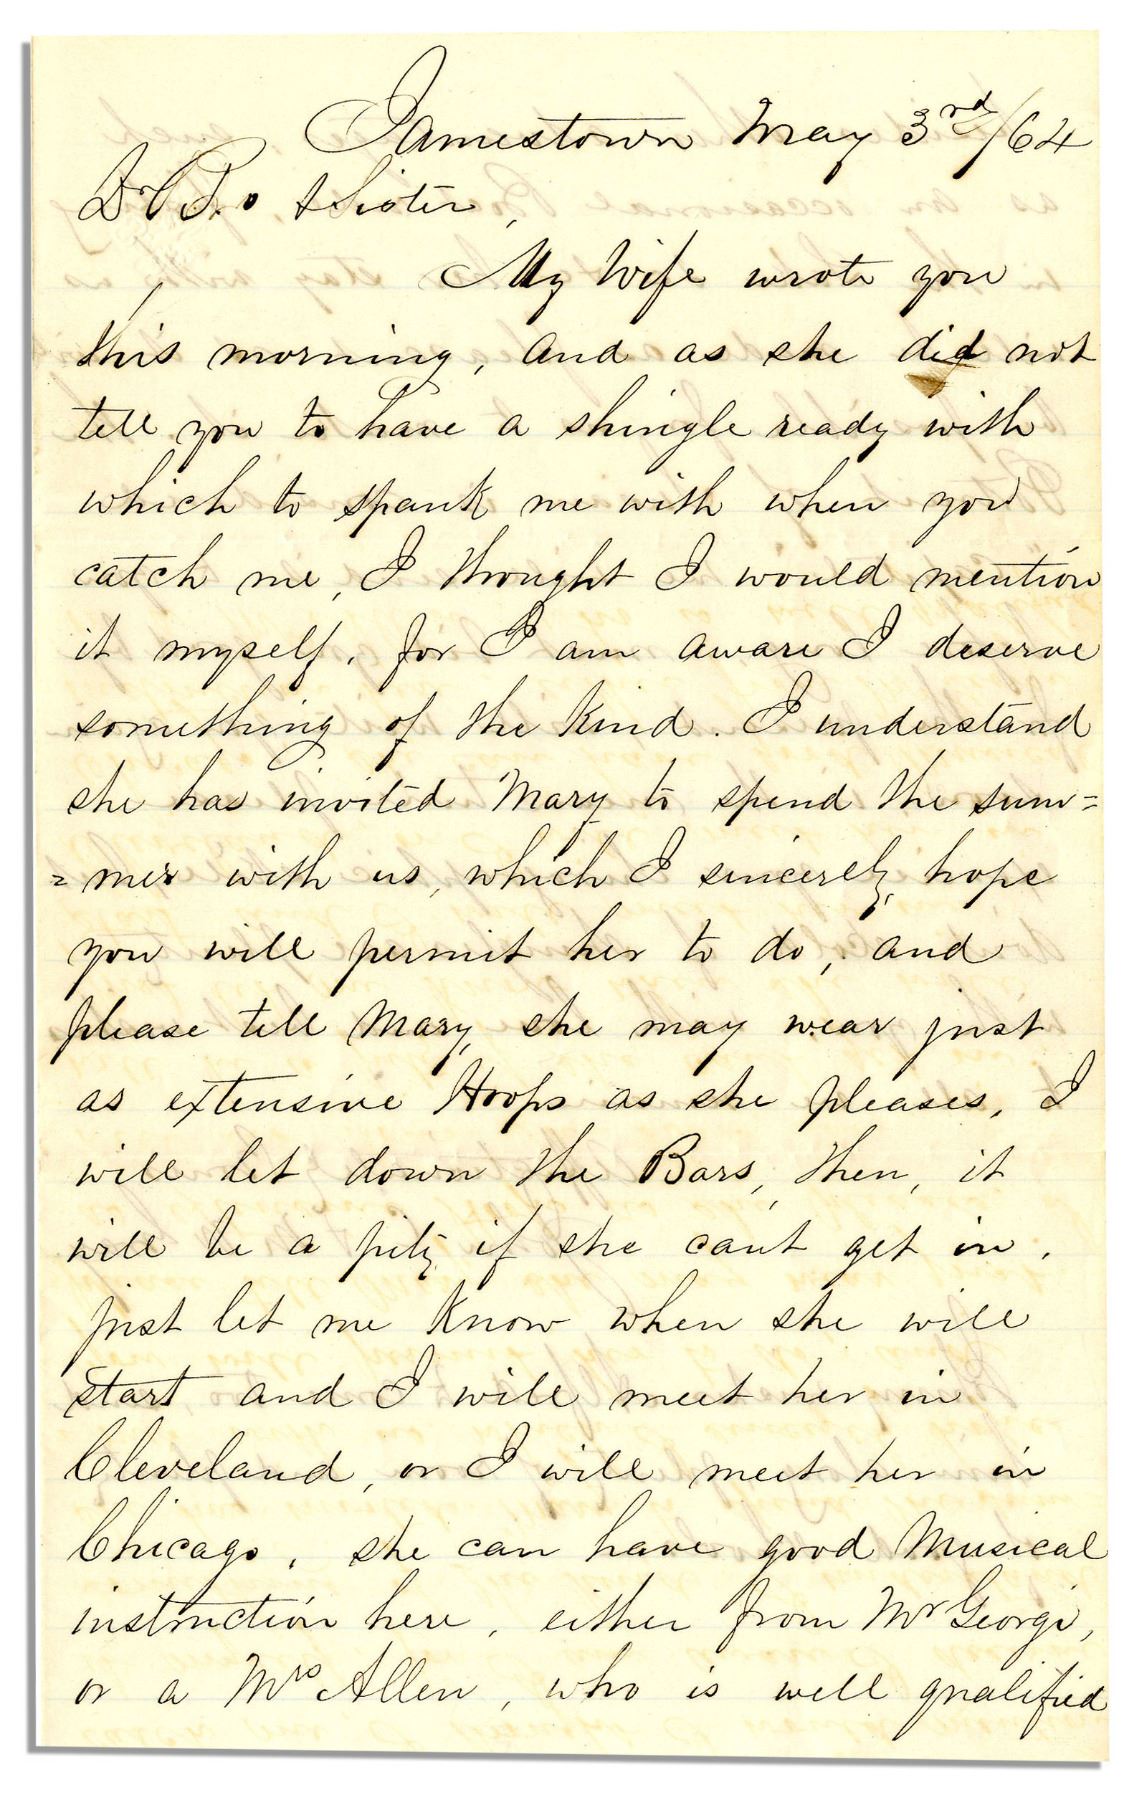 Jamestown May 3rd/64
Dr Bro & Sister,
My Wife wrote you
this morning, and as she did not
tell you to have a shingle ready with
which to spank me with when you
catch me, I thought I would mention
it myself. for I am aware I deserve
something of the kind. I understand
she has invited Mary to spend the sum=
=mer with us, which I sincerely hope
you will permit her to do, and
please tell Mary, she may wear just
as extensive Hoops as she pleases, I
will let down the Bars, then, it
will be a pity if she cant get in.
just let me know when she will
start and I will meet her in
Cleveland, or I will meet her in
Chicago, she can have good Musical
instruction here, either from Mr Georgi,
or a Mrs Allen, who is well qualified